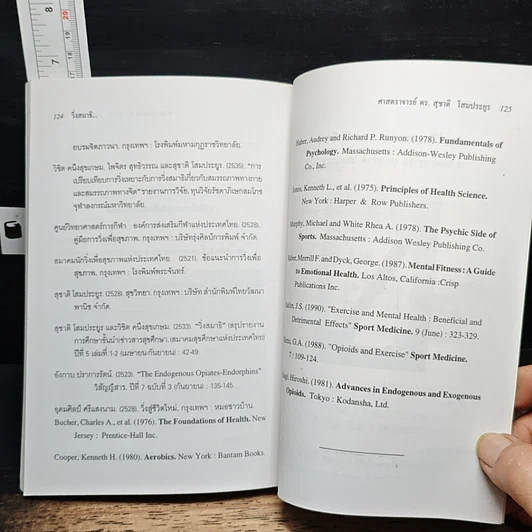 8
7
20
19
18
124 วิ่งสมาธิ...
อบรมจิตภาวนา. กรุงเทพฯ : โรงพิมพ์มหามกุฏราชวิทยาลัย.
วิชิต คนึงสุขเกษม, ไพจิตร สุทธิวรรณ และสุชาติ โสมประยูร. (2535). "การ
เปรียบเทียบการวิ่งเหยาะกับการวิ่งสมาธิเกี่ยวกับสมรรถภาพทางกาย
และสมรรถภาพทางจิต" รายงานการวิจัย. ทุนวิจัยรัชดาภิเษกสมโภช
จุฬาลงกรณ์มหาวิทยาลัย.
ศูนย์วิทยาศาสตร์การกีฬา องค์การส่งเสริมกีฬาแห่งประเทศไทย. (2528).
คู่มือการวิ่งเพื่อสุขภาพ. กรุงเทพฯ : บริษัทรุ่งศิลป์การพิมพ์ จำกัด.
สมาคมนักวิ่งเพื่อสุขภาพแห่งประเทศไทย. (2521). ข้อแนะนำการวิ่งเพื่อ
สุขภาพ. กรุงเทพฯ : โรงพิมพ์พระจันทร์.
สุชาติ โสมประยูร. (2528). สุขวิทยา. กรุงเทพฯ : บริษัท สำนักพิมพ์ไทยวัฒนา
พานิช จำกัด.
สุชาติ โสมประยูร และวิชิต คนึงสุขเกษม. (2533). "วิ่งสมาธิ" (สรุปรายงาน
การศึกษาขั้นนำ)ข่าวสารสุขศึกษา. (สมาคมสุขศึกษาแห่งประเทศไทย)
ปีที่ 5 เล่มที่ 1-2 (เมษายน-กันยายน) : 42-49.
อังกาบ ปราการรัตน์. (2523). "The Endogenous Opiates-Endorphins"
วิสัญญีสาร. ปีที่ 7 ฉบับที่ 3 (กันยายน) : 135-145.
อุดมศิลป์ ศรีแสงนาม. (2528). วิ่งสู่ชีวิตใหม่. กรุงเทพฯ : หมอชาวบ้าน.
Bocher, Charles A., et al. (1976). The Foundations of Health. New
Jersey : Prentice-Hall Inc.
Cooper, Kenneth H. (1980). Aerobics. New York : Bantam Books.
ศาสตราจารย์ ดร. สุชาติ โสมประยูร 125
Audrey and Richard P. Runyon. (1978). Fundamentals of
Psychology. Massachusetts : Addison-Wesley Publishing
Co., Inc.
Kenneth L., et al. (1975). Principles of Health Science.
New York : Harper & Row Publishers.
Michael and White Rhea A. (1978). The Psychic Side of
Sports. Massachusetts : Addison Wesley Publishing Co.
Merrill F. and Dyck, George. (1987). Mental Fitness : A Guide
to Emotional Health. Los Altos, California :Crisp
Publications Inc.
J.S. (1990). "Exercise and Mental Health : Beneficial and
Detrimental Effects" Sport Medicine. 9 (June) : 323-329.
G.A. (1988). "Opioids and Exercise" Sport Medicine.
7 : 109-124.
Hiroshi. (1981). Advances in Endogenous and Exogenous
Opioids. Tokyo : Kodansha, Ltd.